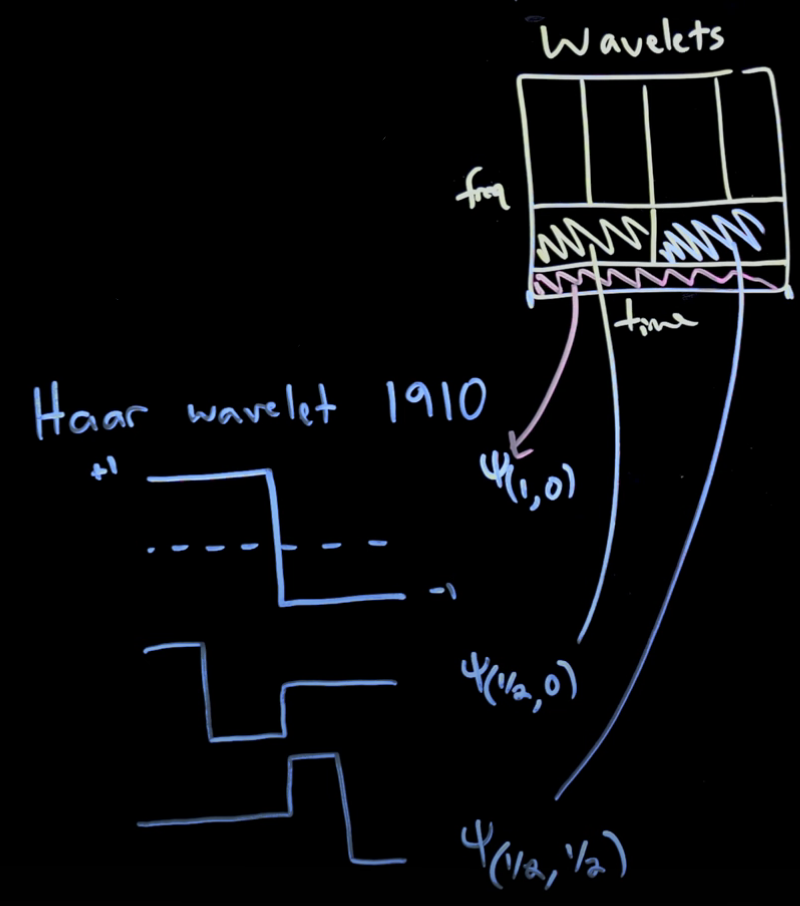 Wavelets
freq
time
Haar wavelet 1910
+1
ψ(1,0)
-1
ψ(1/2,0)
ψ(1/2,1/2)